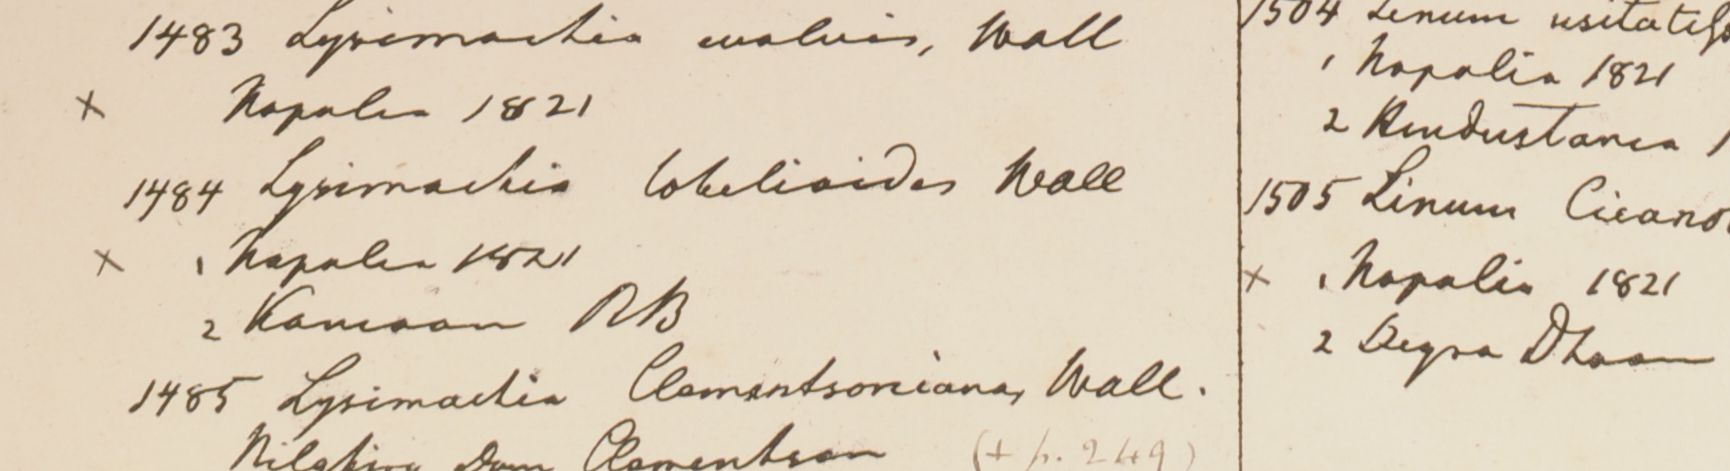 1483 Lysimachia evalvis, Wall
x Napalia 1821
1484 Lysimachia lobelioides Wall
x 1 Napalia 1821
2 Kamaon RB
1485 Lysimachia Clementsoniana, Wall.
Nilghiry Dom Clementson (+ p. 249)
1504 Linum usitatiss
1 Napalia 1821
2 Hindustania
1505 Linum Cicano
x 1 Napalia 1821
2 Deyra Dhoon